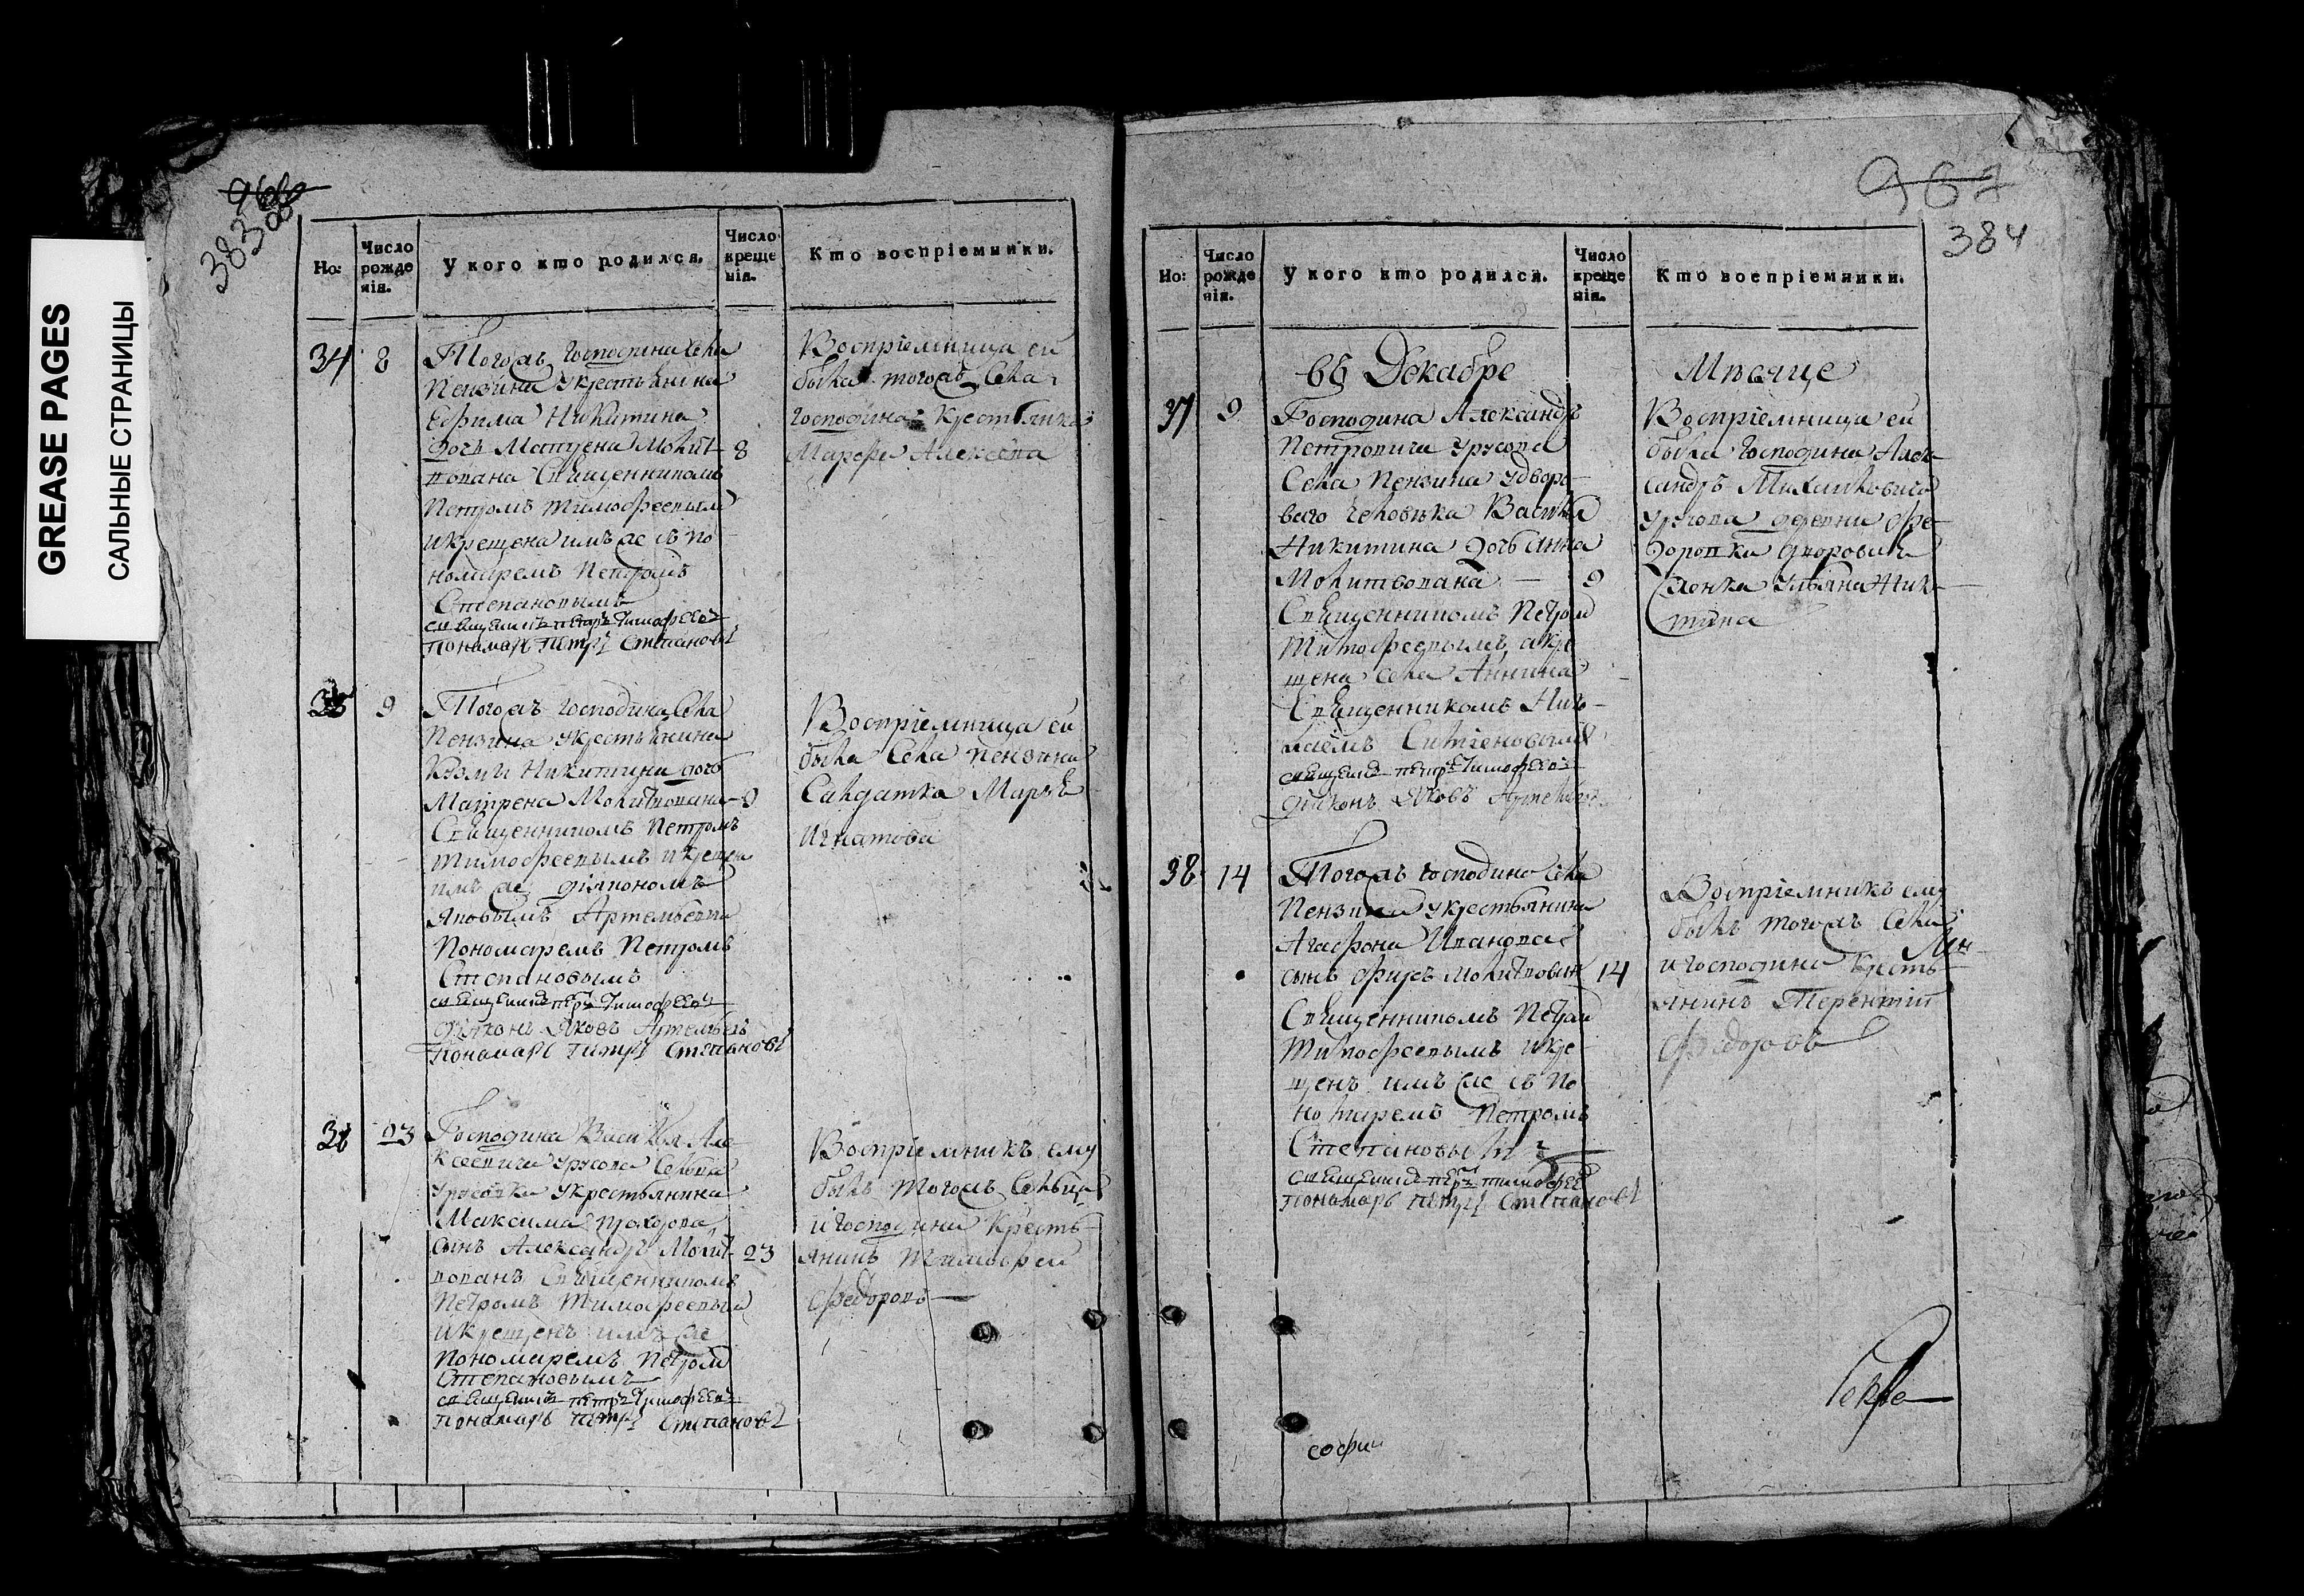 GREASE PAGES
САЛЬНЫЕ СТРАНИЦЫ
383
Но:
Число рожде нія.
У кого кто родился.
Число креще нія.
Кто воспріемники.
34 8 Тогожъ господина села
Пензина укрестьянина
Ефима Никитина
дочь Матрена Молит- 8
вована Священникомъ
Петромъ Тимофеевымъ
и крещена имъ же съ по
номаремъ Петромъ
Степановымъ
священникъ петръ Тимофеевъ
пономарь петръ Степановъ
Воспріемница ей
была тогожъ села
господина крестьянка
Марфа Алексева
35 9 Тогожъ господина села
Пензина укрестьянина
Козмы Никитина дочь
Матрена Молитвована 9
Священникомъ Петромъ
Тимофеевымъ и крещена
имъ же діякономъ
Яковымъ Артемьевым
Пономаремъ Петромъ
Степановымъ
священникъ петръ Тимофеевъ
діяконъ Яковъ Артемьевъ
пономарь петръ Степановъ
Воспріемница ей
была села пензина
Салдатка Марья
Игнатова
36 23 Господина Василья Але
ксеевича Урусова сельца
Урусовки укрестьянина
Максима Прохорова
сынъ Александръ Молит- 23
вованъ Священникомъ
Петромъ Тимофеевым
и крещенъ имъ же
Пономаремъ Петром
Степановымъ
священникъ петръ Тимофеевъ
пономарь петръ Степановъ
Воспріемникъ ему
былъ тогожъ сельца
и господина кресть-
янинъ Тимофей
Федоровъ
967
384
Но:
Число рожде нія.
У кого кто родился.
Число креще нія.
Кто воспріемники.
въ Декабре Мѣсяце
37 9 Господина Александръ
Петровича Урусова
Села Пензина удворо-
ваго человека Василья
Никитина дочь Анна
Молитвована 9
Священникомъ Петром
Тимофеевымъ, а кре
щена села Аннина
Священникомъ
священникъ петръ Тимофеевъ
діяконъ Яковъ Артемьевъ
Воспріемница ей
была господина Алек-
сандръ Михайловича
Урусова деревни Фе-
доровки дворовая
жонка Ульяна Ники-
тина
38 14 Тогожъ господина села
Пензина укрестьянина
Агафона Иванова
сынъ Фирсъ Молитвован 14
Священникомъ Петром
Тимофеевымъ и кре
щенъ имъ же съ по
номаремъ Петромъ
Степановым
священникъ петръ тимофее
пономарь петръ Степановъ
Воспріемникъ ему
былъ тогожъ села
и господина кресть-
янинъ Терентій
Федоровъ